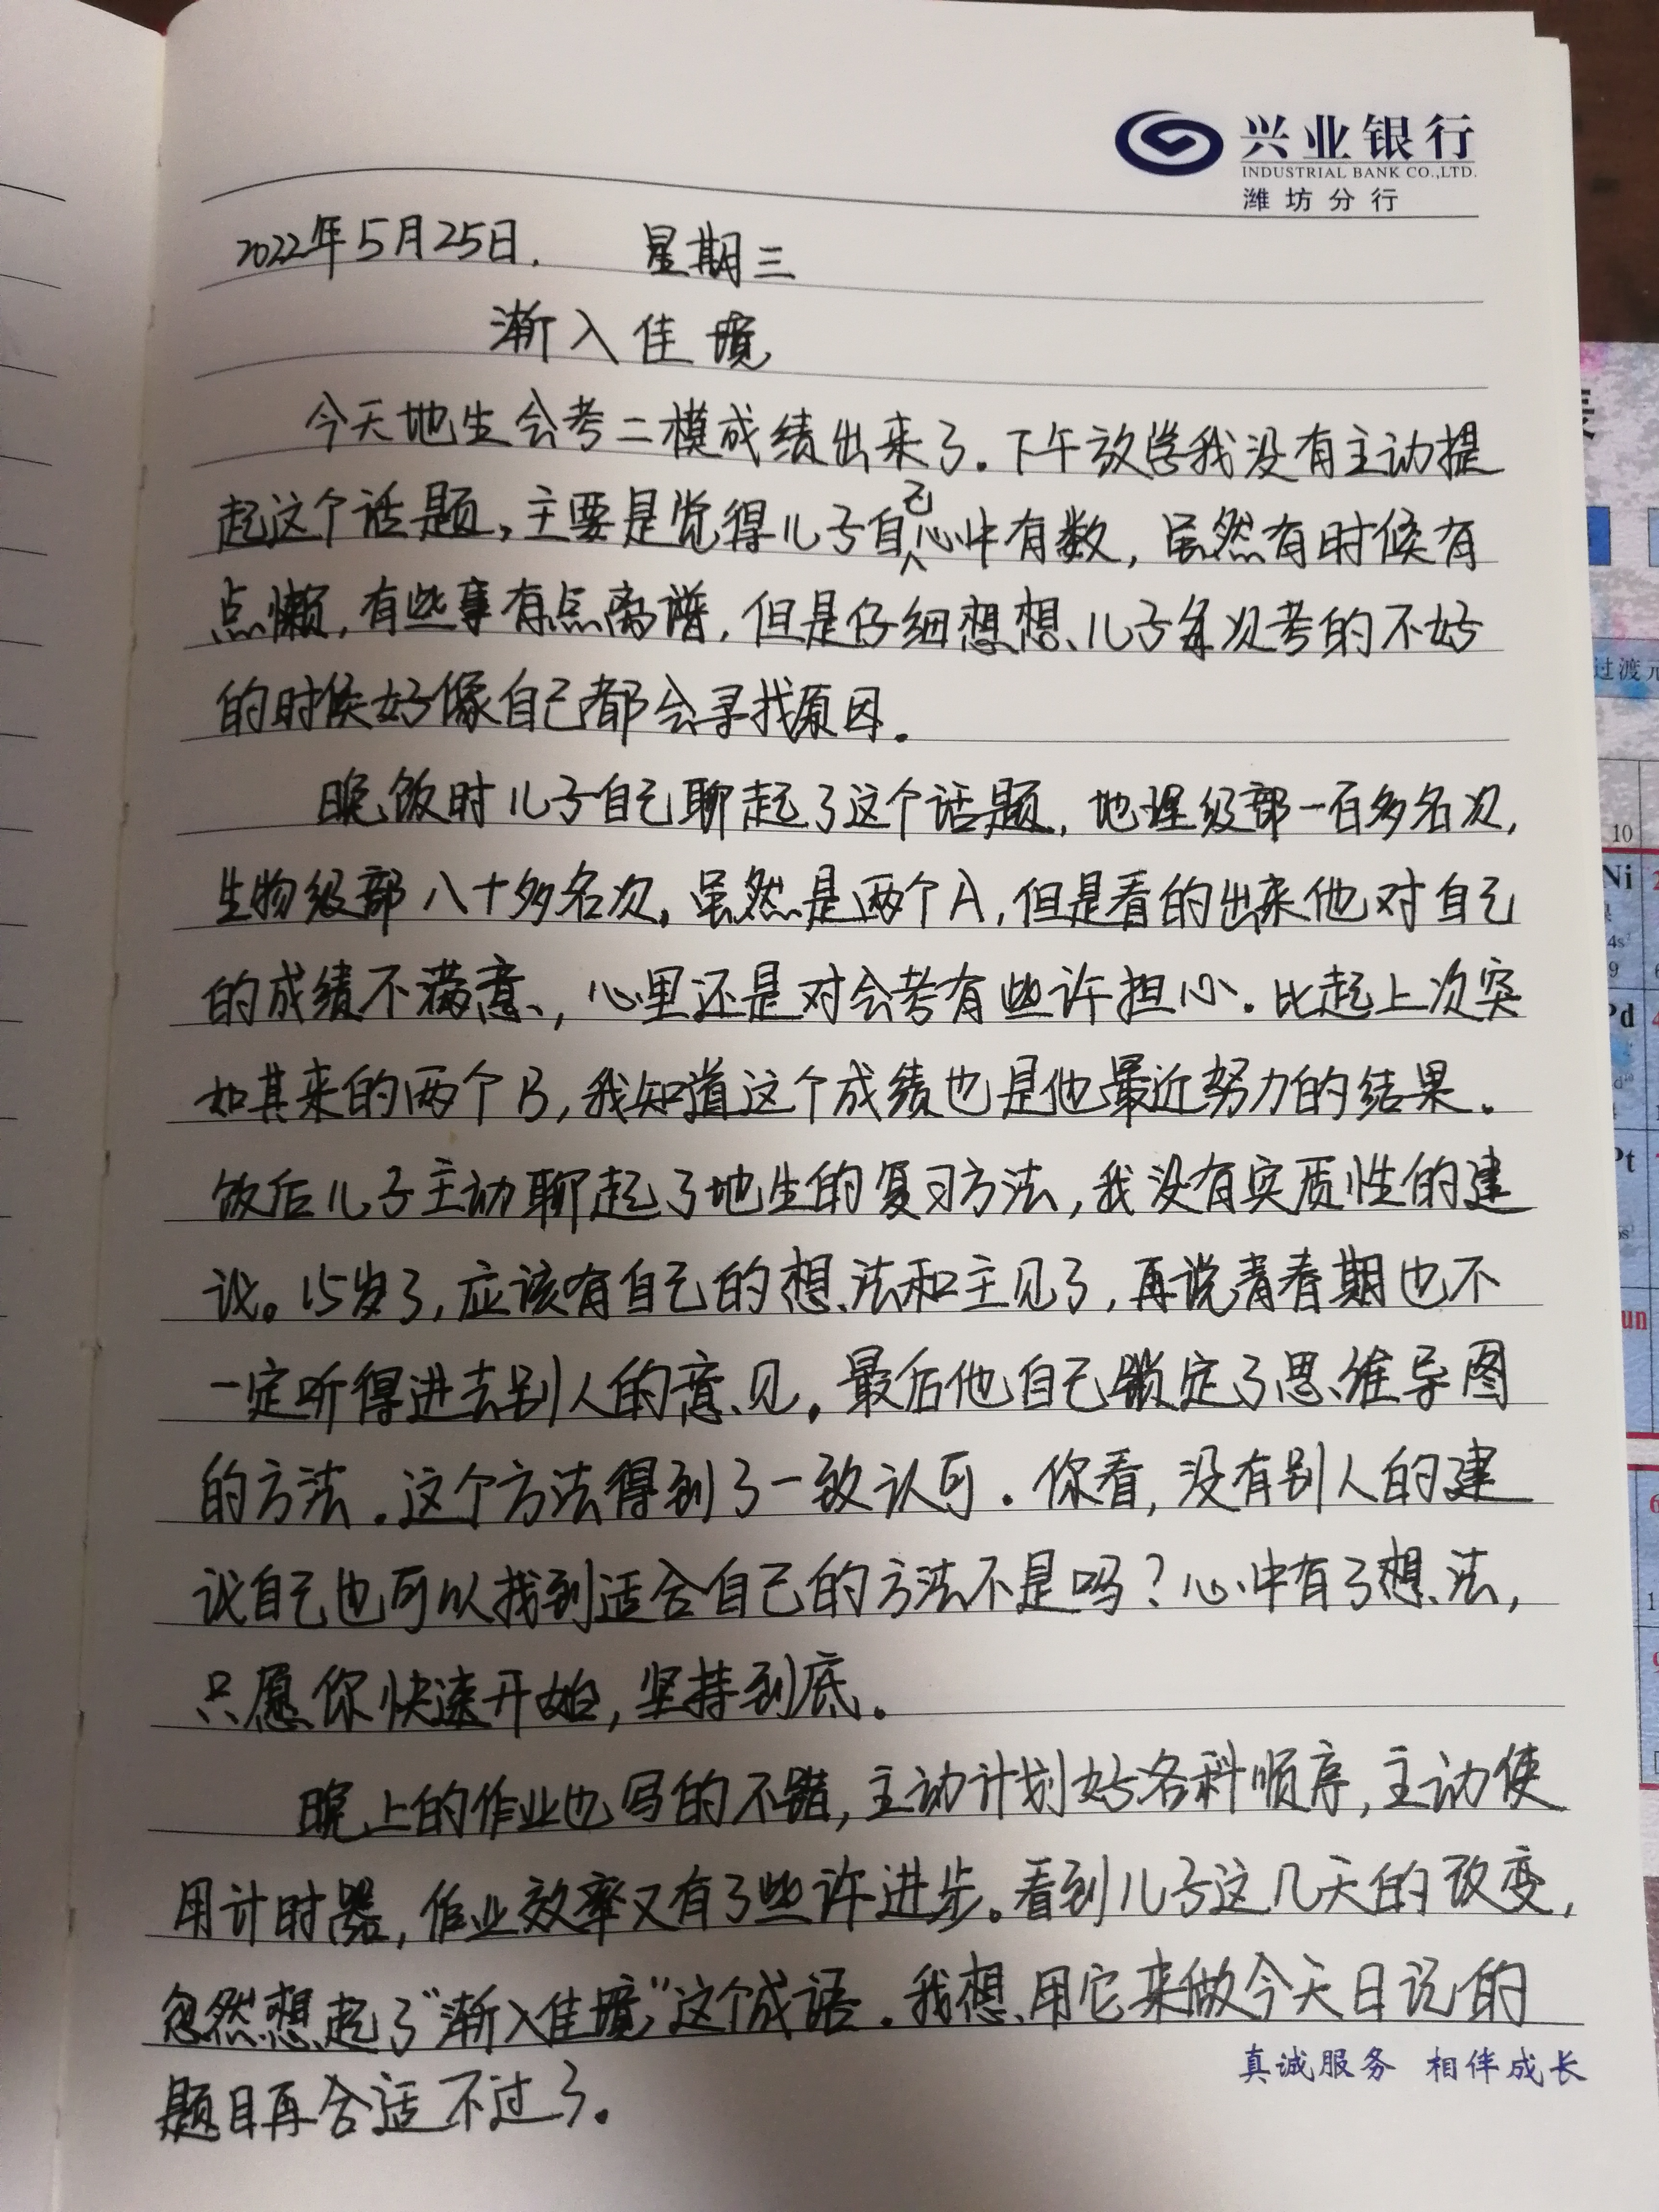 兴业银行
INDUSTRIAL BANK CO.,LTD.
潍坊分行
2022年5月25日. 星期三
渐入佳境
今天地生会考二模成绩出来了.下午放学我没有主动提
起这个话题,主要是觉得儿子自己心中有数,虽然有时候有
点懒,有些事有点离谱,但是仔细想想、儿子每次考的不好
的时候好像自己都会寻找原因.
晚饭时儿子自己聊起了这个话题,地理级部一百多名次,
生物级部八十多名次,虽然是两个A,但是看的出来他对自己
的成绩不满意,心里还是对会考有些许担心.比起上次突
如其来的两个B,我知道这个成绩也是他最近努力的结果.
饭后儿子主动聊起了地生的复习方法,我没有实质性的建
议。15岁了,应该有自己的想法和主见了,再说青春期也不
一定听得进去别人的意见.最后他自己锁定了思维导图
的方法.这个方法得到了一致认可.你看,没有别人的建
议自己也可以找到适合自己的方法不是吗?心中有了想法,
只愿你快速开始,坚持到底.
晚上的作业也写的不错,主动计划好各科顺序,主动使
用计时器,作业效率又有了些许进步。看到儿子这几天的改变,
忽然想起了"渐入佳境"这个成语.我想用它来做今天日记的
题目再合适不过了.
真诚服务 相伴成长
过渡元
10
Ni
4s²
9
Pd
Pt
un